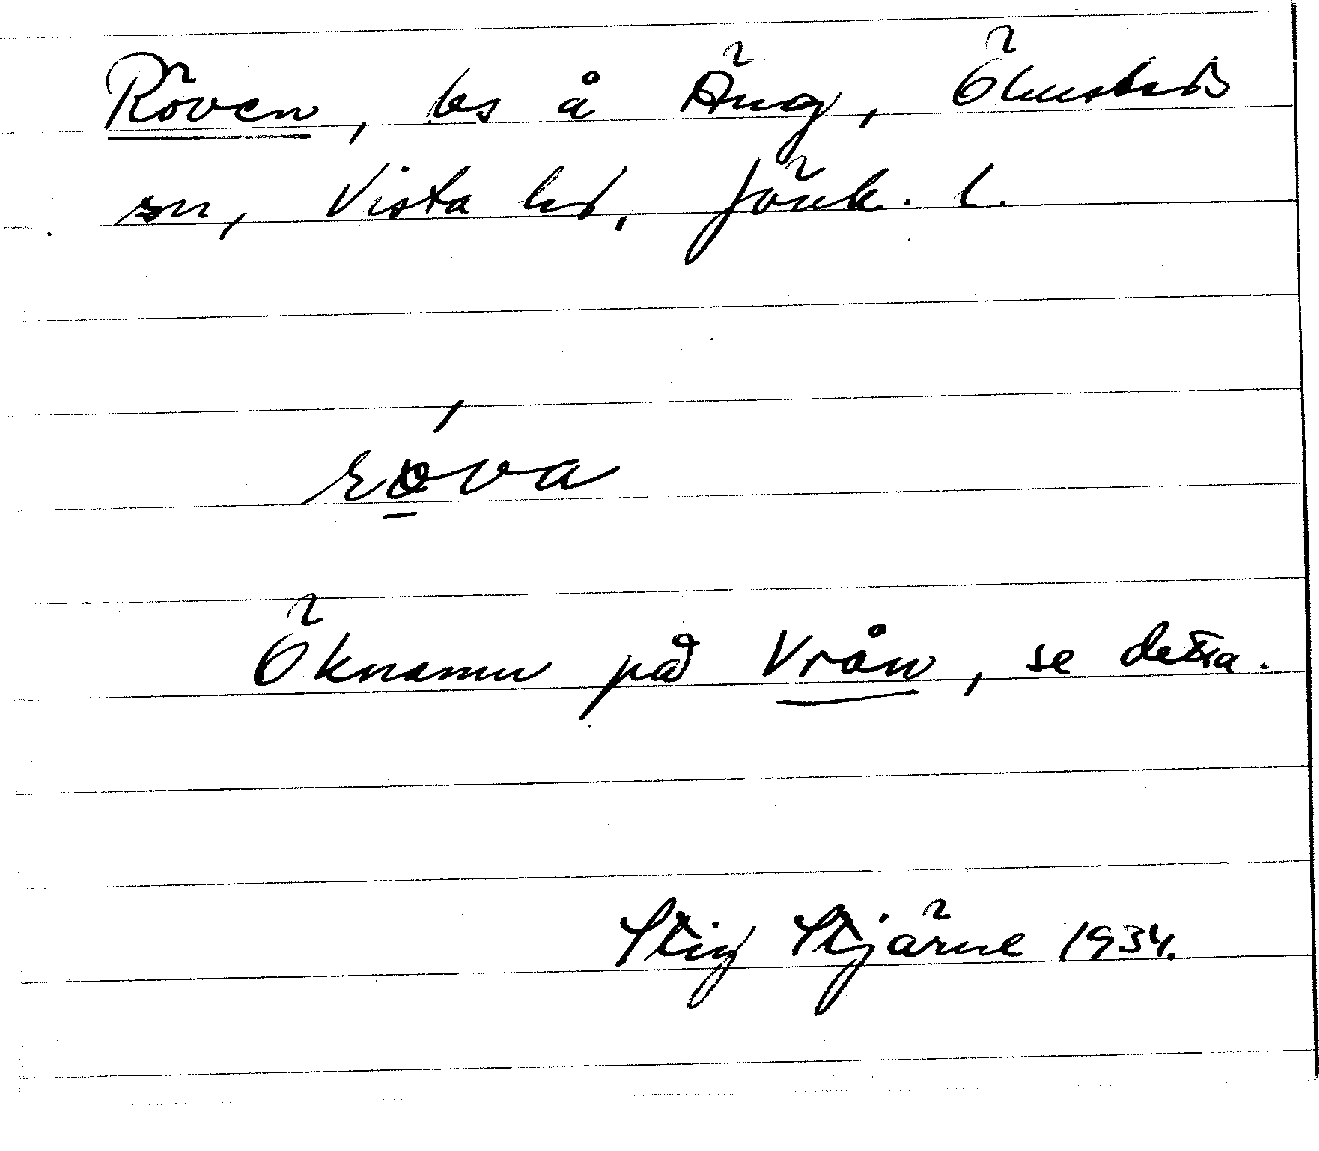 Röven, ls å Äng, Ölmstads
sn, Vista hd, Jönk. l.
røva
Öknamn på Vrån, se detta.
Stig Stjärne 1934.